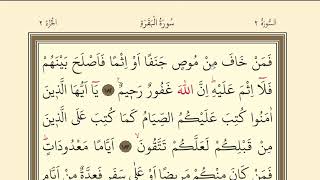 السُّورَةُ ٢ سُورَةُ الْبَقَرَةِ الجُزْءُ ٢
فَمَنْ خَافَ مِنْ مُوصٍ جَنَفًا اَوْ اِثْمًا فَاَصْلَحَ بَيْنَهُمْ
فَلَٓا اِثْمَ عَلَيْهِۜ اِنَّ اللّٰهَ غَفُورٌ رَحِيمٌ۟ ﴿١٨٢﴾ يَٓا اَيُّهَا الَّذِينَ
اٰمَنُوا كُتِبَ عَلَيْكُمُ الصِّيَامُ كَمَا كُتِبَ عَلَى الَّذِينَ
مِنْ قَبْلِكُمْ لَعَلَّكُمْ تَتَّقُونَۙ ﴿١٨٣﴾ اَيَّامًا مَعْدُودَاتٍۜ
فَمَنْ كَانَ مِنْكُمْ مَرِيضًا اَوْ عَلٰى سَفَرٍ فَعِدَّةٌ مِنْ اَيَّامٍ